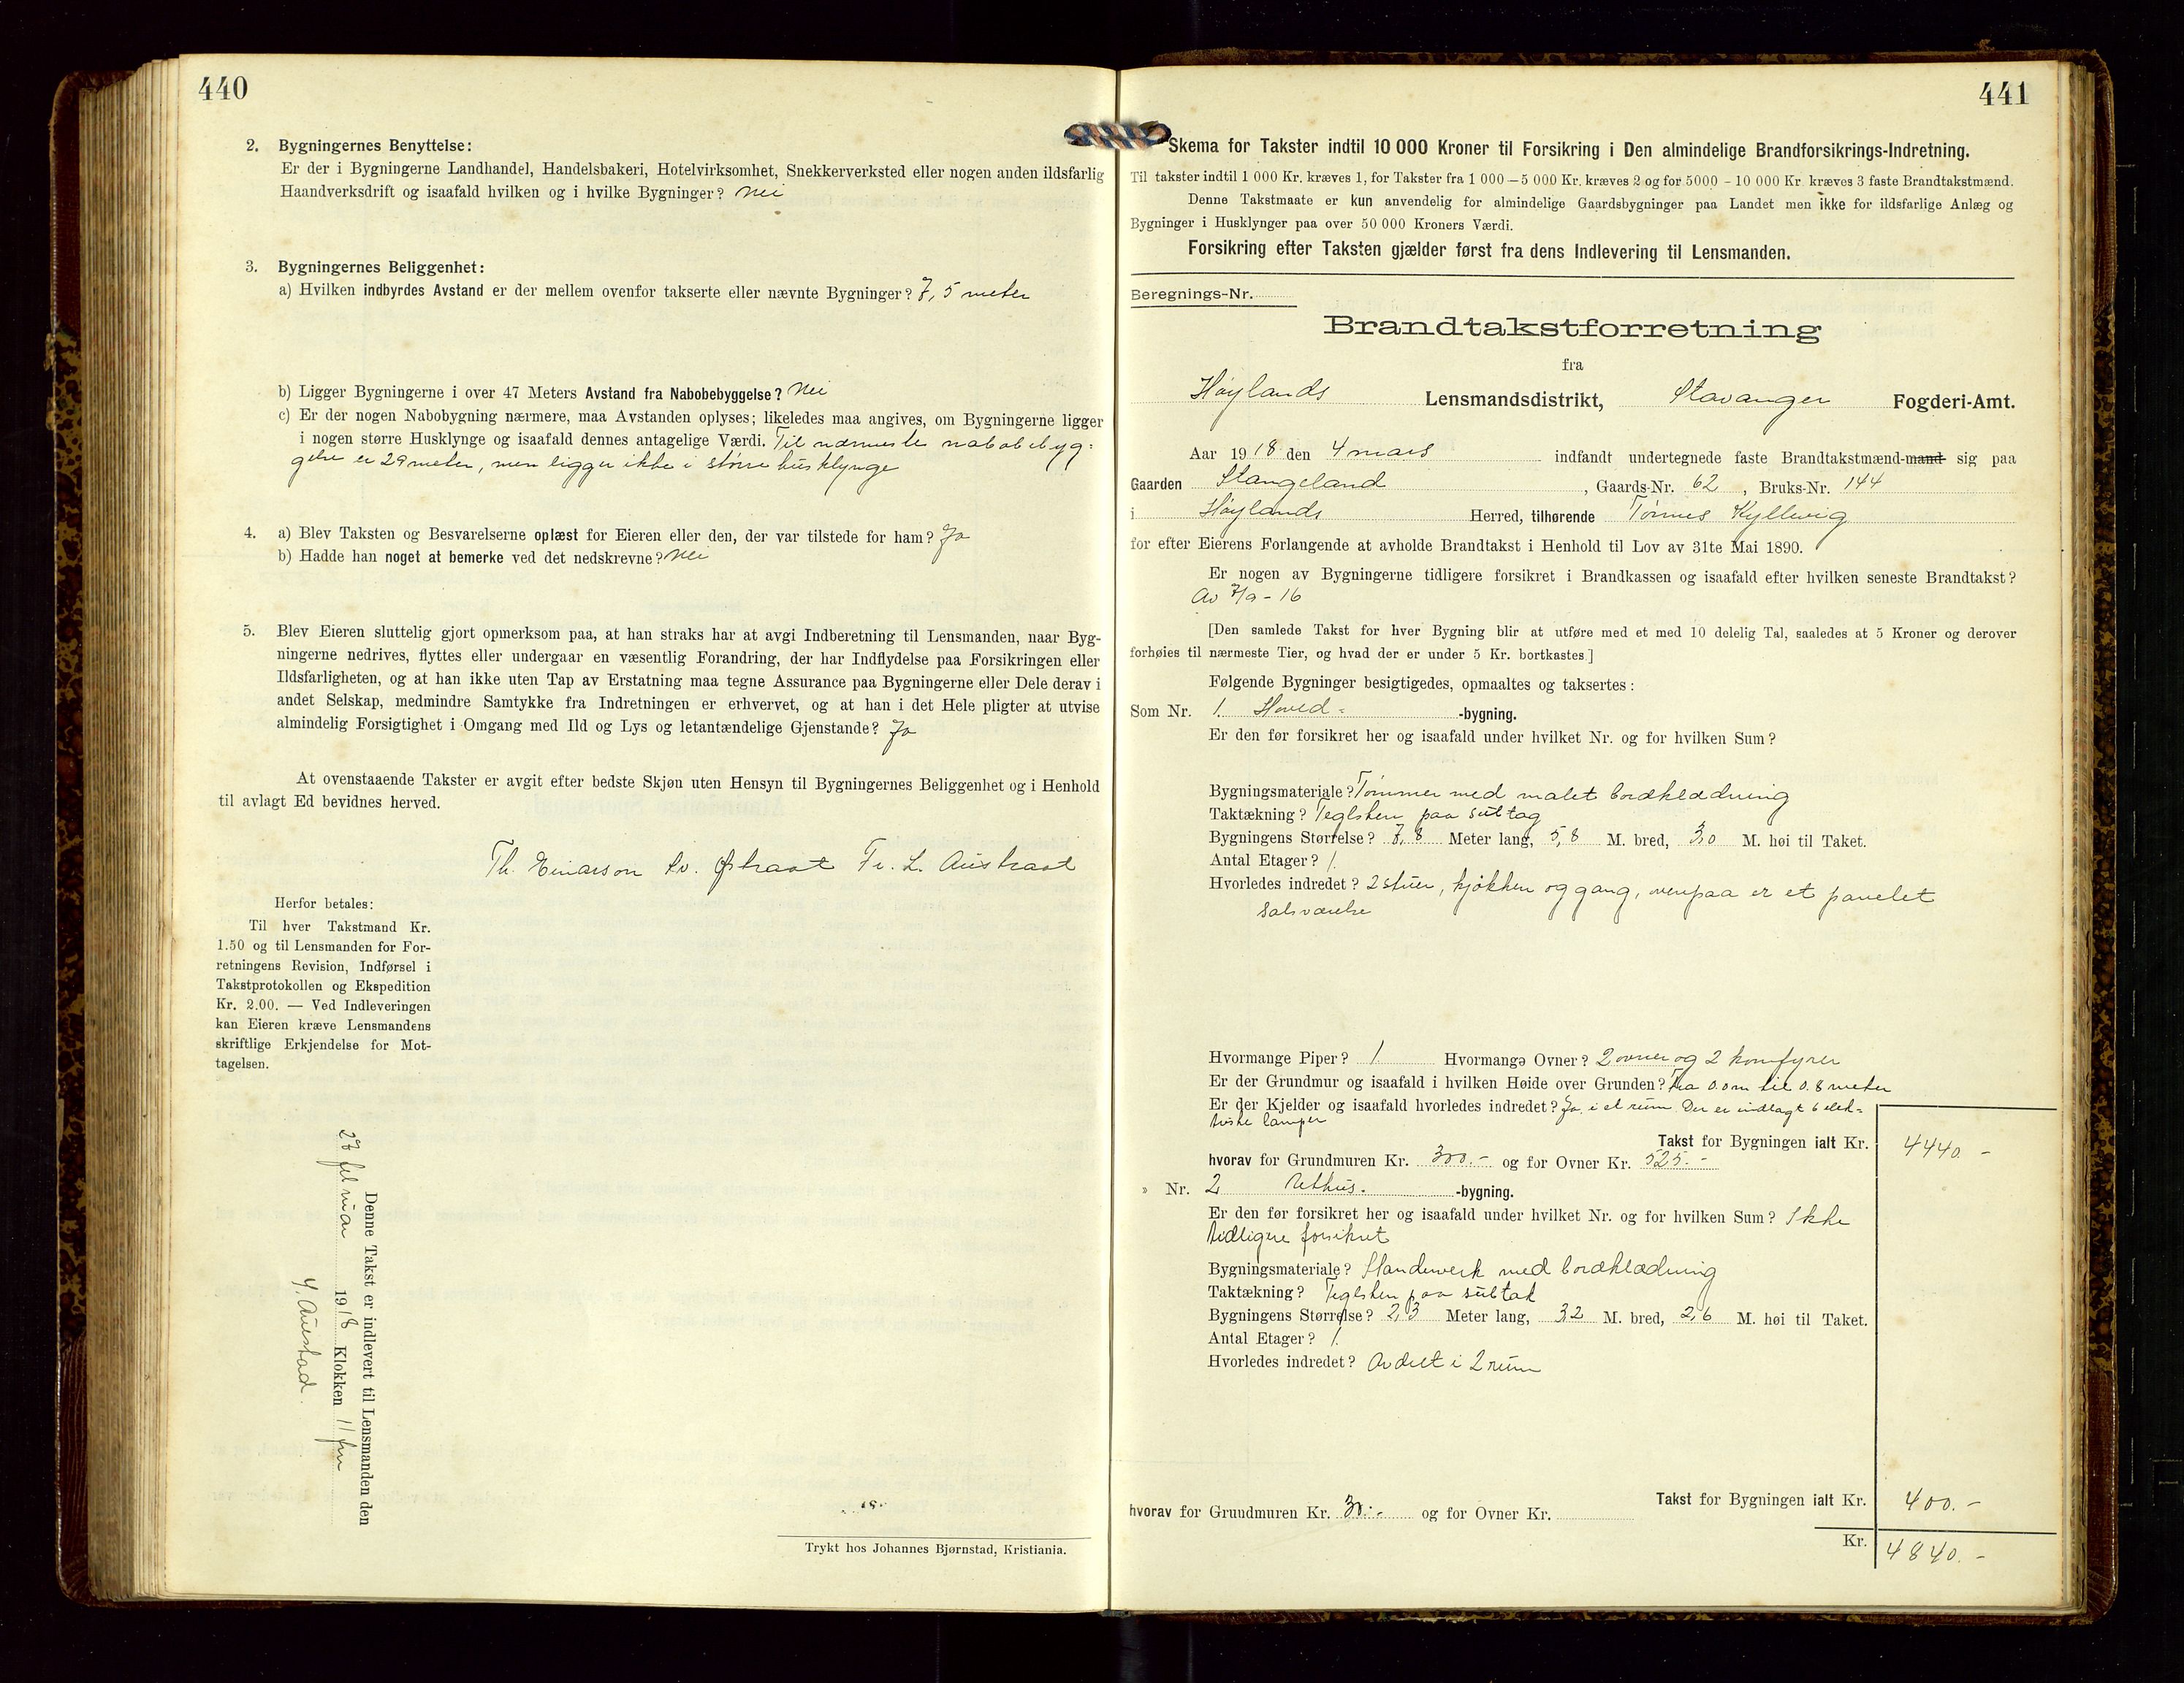 440
2. Bygningernes Benyttelse:
Er der i Bygningerne Landhandel, Handelsbakeri, Hotelvirksomhet, Snekkerverksted eller nogen anden ildsfarlig
Haandverksdrift og isaafald hvilken og i hvilke Bygninger? Nei
3. Bygningernes Beliggenhet:
a) Hvilken indbyrdes Avstand er der mellem ovenfor takserte eller nævnte Bygninger? 7,5 meter
b) Ligger Bygningerne i over 47 Meters Avstand fra Nabobebyggelse? Nei
c) Er der nogen Nabobygning nærmere, maa Avstanden oplyses; likeledes maa angives, om Bygningerne ligger
i nogen større Husklynge og isaafald dennes antagelige Værdi. Til nærmeste nabobebyg-
gelse er 29 meter, men ligger ikke i større husklynge
4. a) Blev Taksten og Besvarelserne oplæst for Eieren eller den, der var tilstede for ham? Ja
b) Hadde han noget at bemerke ved det nedskrevne? Nei
5. Blev Eieren sluttelig gjort opmerksom paa, at han straks har at avgi Indberetning til Lensmanden, naar Byg-
ningerne nedrives, flyttes eller undergaar en væsentlig Forandring, der har Indflydelse paa Forsikringen eller
Ildsfarligheten, og at han ikke uten Tap av Erstatning maa tegne Assurance paa Bygningerne eller Dele derav i
andet Selskap, medmindre Samtykke fra Indretningen er erhvervet, og at han i det Hele pligter at utvise
almindelig Forsigtighet i Omgang med Ild og Lys og letantændelige Gjenstande? Ja
At ovenstaaende Takster er avgit efter bedste Skjøn uten Hensyn til Bygningernes Beliggenhet og i Henhold
til avlagt Ed bevidnes herved.
Th. Einarson Sv. Østraat Fr. L. Austraat
Herfor betales:
Til hver Takstmand Kr.
1.50 og til Lensmanden for For-
retningens Revision, Indførsel i
Takstprotokollen og Ekspedition
Kr. 2.00. — Ved Indleveringen
kan Eieren kræve Lensmandens
skriftlige Erkjendelse for Mot-
tagelsen.
Denne Takst er indlevert til Lensmanden den
27 februar 1918 Klokken 11 fm
Y. Auestad.
Trykt hos Johannes Bjørnstad, Kristiania.
441
Skema for Takster indtil 10 000 Kroner til Forsikring i Den almindelige Brandforsikrings-Indretning.
Til takster indtil 1 000 Kr. kræves 1, for Takster fra 1 000—5 000 Kr. kræves 2 og for 5000 - 10 000 Kr kræves 3 faste Brandtakstmænd.
Denne Takstmaate er kun anvendelig for almindelige Gaardsbygninger paa Landet men ikke for ildsfarlige Anlæg og
Bygninger i Husklynger paa over 50 000 Kroners Værdi.
Forsikring efter Taksten gjælder først fra dens Indlevering til Lensmanden.
Beregnings-Nr.
Brandtakstforretning
fra
Høylands Lensmandsdistrikt, Stavanger Fogderi-Amt.
Aar 1918 den 4 mars indfandt undertegnede faste Brandtakstmænd-mand sig paa
Gaarden Stangeland, Gaards-Nr. 62, Bruks-Nr. 144
i Høylands Herred, tilhørende Tønnes Kyllevig
for efter Eierens Forlangende at avholde Brandtakst i Henhold til Lov av 31te Mai 1890.
Er nogen av Bygningerne tidligere forsikret i Brandkassen og isaafald efter hvilken seneste Brandtakst?
Av 7/9 - 16
[Den samlede Takst for hver Bygning blir at utføre med et med 10 delelig Tal, saaledes at 5 Kroner og derover
forhøies til nærmeste Tier, og hvad der er under 5 Kr. bortkastes]
Følgende Bygninger besigtigedes, opmaaltes og taksertes:
Som Nr. 1. Hoved- -bygning.
Er den før forsikret her og isaafald under hvilket Nr. og for hvilken Sum?
Bygningsmateriale? Tømmer med malet bordklædning
Taktækning? Teglsten paa sutag
Bygningens Størrelse? 7,8 Meter lang, 5,8 M. bred, 3,0 M. høi til Taket.
Antal Etager? 1.
Hvorledes indredet? 2 stuer, kjøkken og gang, ovenpaa er et panelet
salsværelse
Hvormange Piper? 1 Hvormange Ovner? 2 ovner og 2 komfyrer
Er der Grundmur og isaafald i hvilken Høide over Grunden? Fra 0.0m til 0.8 meter
Er der Kjelder og isaafald hvorledes indredet? Ja. i et rum. Der er indlagt 6 elek-
triske lamper
Takst for Bygningen ialt Kr. 4440.-
hvorav for Grundmuren Kr. 300.- og for Ovner Kr. 525.-
» Nr. 2 Uthus. -bygning.
Er den før forsikret her og isaafald under hvilket Nr. og for hvilken Sum? Ikke
tidligere forsikret
Bygningsmateriale? Standerverk med bordklædning
Taktækning? Teglsten paa sutak
Bygningens Størrelse? 2,3 Meter lang, 3,2 M. bred, 2,6 M. høi til Taket.
Antal Etager? 1.
Hvorledes indredet? Avdelt i 2 rum
Takst for Bygningen ialt Kr. 400.-
hvorav for Grundmuren Kr. 30.- og for Ovner Kr.
Kr. 4840.-